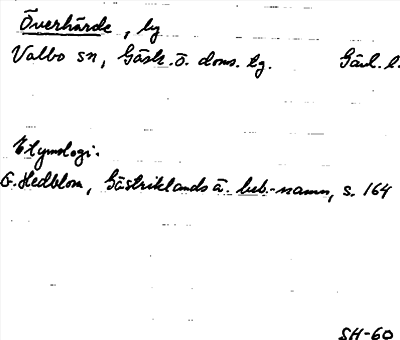 Överhärde, by
Valbo sn, Gästr. ö. doms. tg. Gävl. l.
Etymologi.
G. Hedblom, Gästriklands ä. beb.-namn, s. 164
SH-60